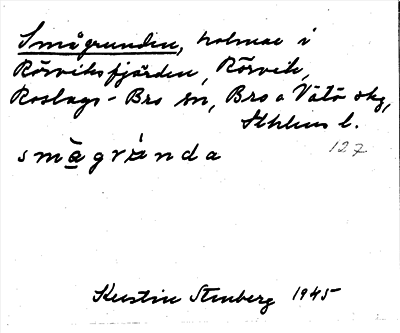 Smågrunden, holmar i
Rörviksfjärden, Rörvik,
Roslags-Bro sn, Bro o Vätö skg,
Sthlms l.
127
småg
Kerstin Stenberg 1945